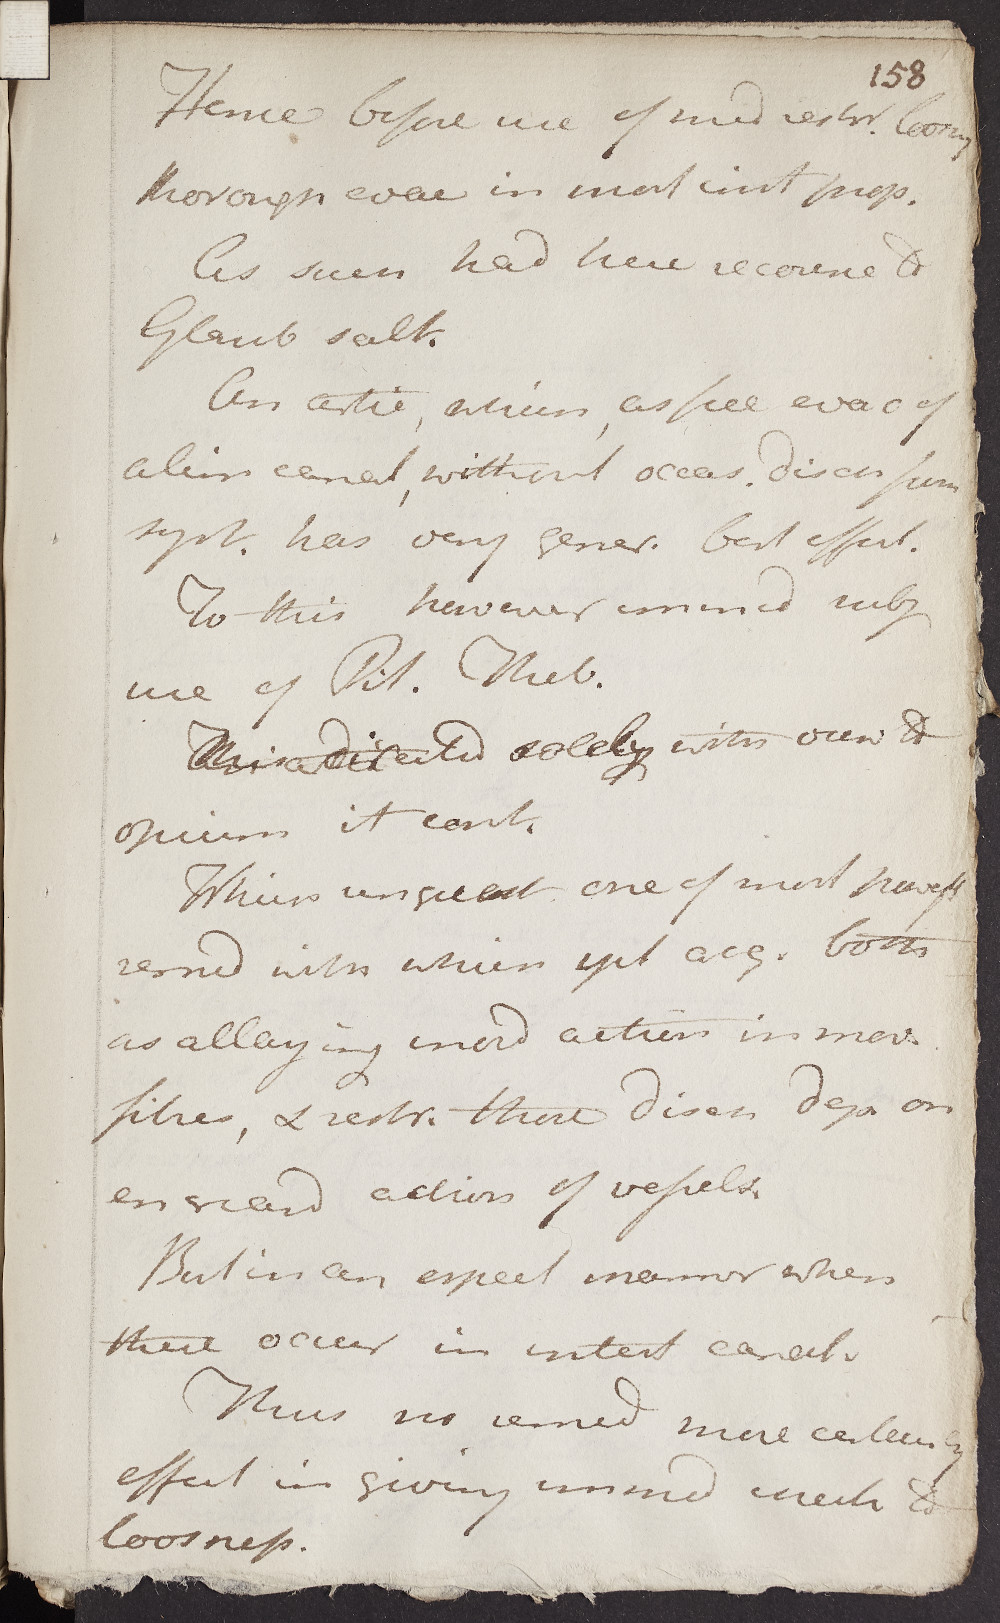 158
Hence before use of med restr. loosn
thorough evac in most inst prop.
As such had here recourse to
Glaub salt.
An artic, which, as free evac of
alim canal, without occas. disch from
syst. has very gener. best effect.
To this however immed subj
use of Pil. Theb.
solely with view to
opium it cont.
Which unquest one of most powerfl
remed with which ypt acq. both
as allaying inord action in mov.
fibres, & restr. those disch dep on
encreasd action of vessels.
But in an espect manner when
these occur in intest canal.
Thus no remed more certainly
effect in giving immed check to
loosness.